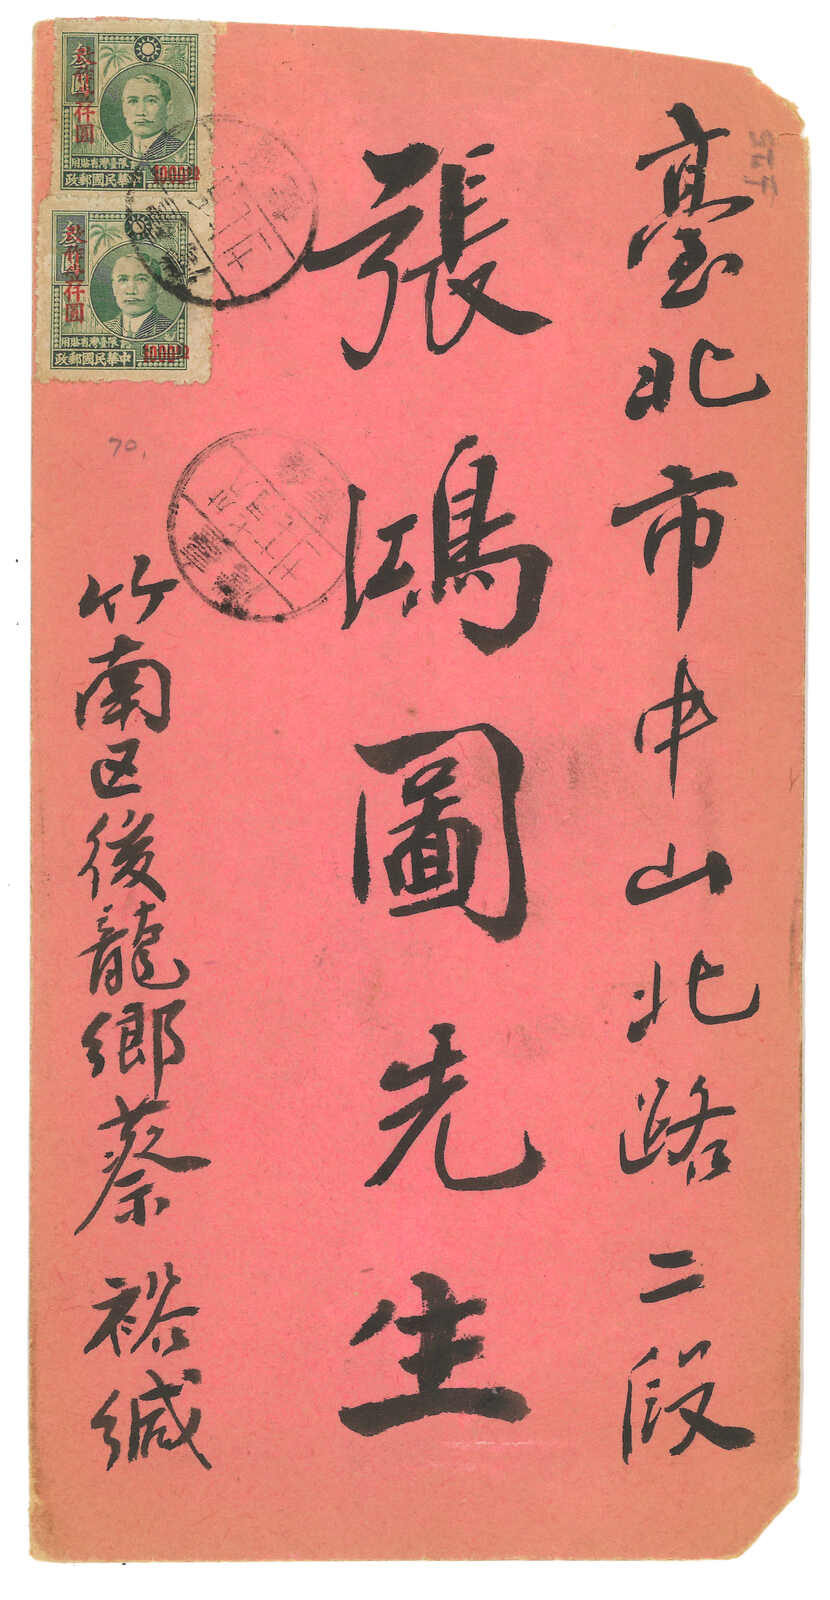 臺北市中山北路二段
張鴻圖先生
竹南区後龍鄉蔡裕緘
叁仟圓
限臺灣省貼用
中華民國郵政
叁仟圓
限臺灣省貼用
中華民國郵政
70.